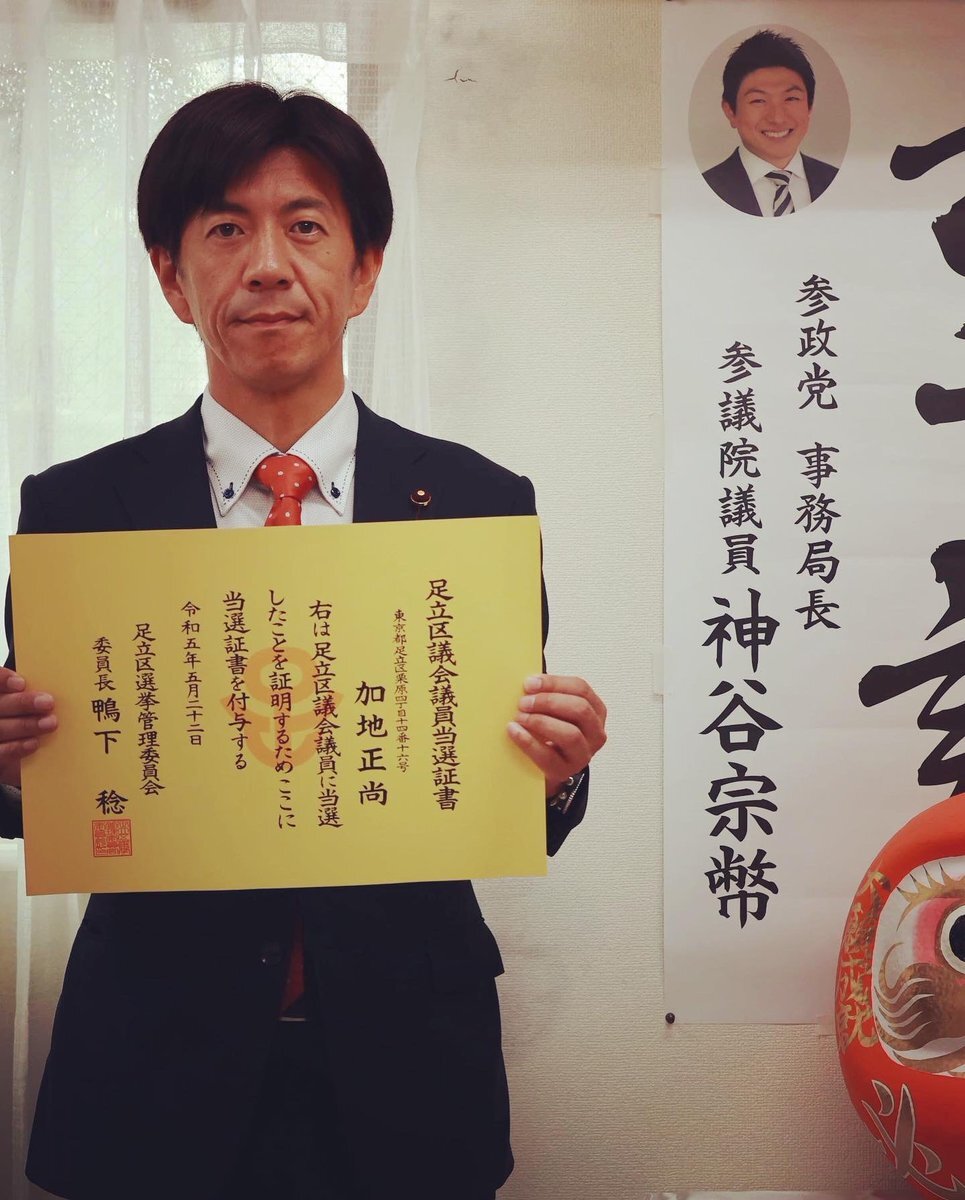 足立区議会議員当選証書
東京都足立区栗原四丁目十四番十六号
加地正尚
右は足立区議会議員に当選
したことを証明するためここに
当選証書を付与する
令和五年五月二十二日
足立区選挙管理委員会
委員長 鴨下 稔
参政党 事務局長
参議院議員 神谷宗幣
必